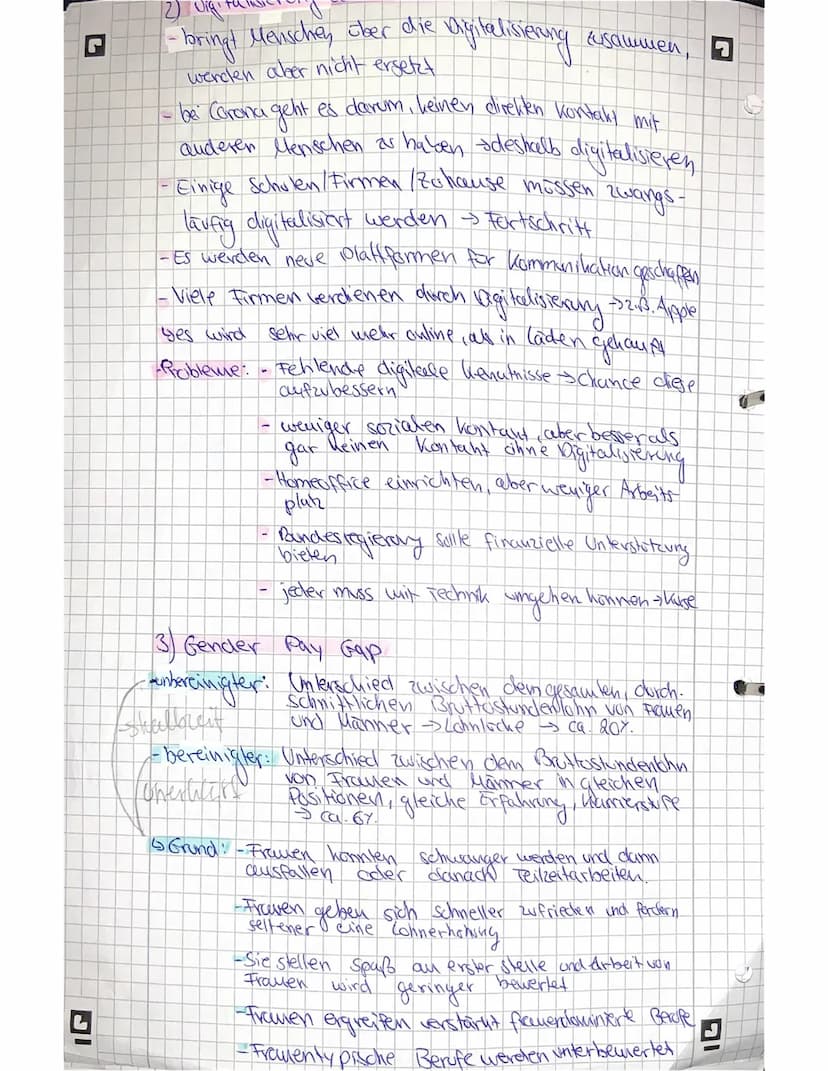 2) Digitalisierung
- bringt Menschen über die Digitalisierung zusammen,
werden aber nicht ersetzt
- bei Corona geht es darum, keinen direkten Kontakt mit
anderen Menschen zu haben → deshalb digitalisieren
- Einige Schulen/Firmen/Zuhause müssen zwangs-
läufig digitalisiert werden → Fortschritt
- Es werden neue Plattformen für Kommunikation geschaffen
- Viele Firmen verdienen durch Digitalisierung → z.B. Apple
↳ es wird sehr viel mehr online, als in Läden gekauft
- Probleme: - Fehlende digitale Kenntnisse → Chance diese
aufzubessern
- weniger sozialen Kontakt, aber besser als
gar keinen Kontakt ohne Digitalisierung
- Homeoffice einrichten, aber weniger Arbeits-
platz
- Bundesregierung sollte finanzielle Unterstützung
bieten
- jeder muss mit Technik umgehen können → Kurse
3) Gender Pay Gap
- unbereinigter: Unterschied zwischen dem gesamten, durch-
schnittlichen Bruttostundenlohn von Frauen
und Männer → Lohnlücke → ca. 20%.
- bereinigter: Unterschied zwischen dem Bruttostundenlohn
von Frauen und Männer in gleichen
Positionen, gleiche Erfahrung, Karrierestufe
→ ca. 6%
↳ Grund: - Frauen könnten schwanger werden und dann
ausfallen oder danach Teilzeitarbeiten.
- Frauen geben sich schneller zufrieden und fordern
seltener eine Lohnerhöhung
- Sie stellen Spaß an erster Stelle und Arbeit von
Frauen wird geringer bewertet
- Frauen ergreifen verstärkt frauendominierte Berufe
- Frauentypische Berufe werden unterbewertet